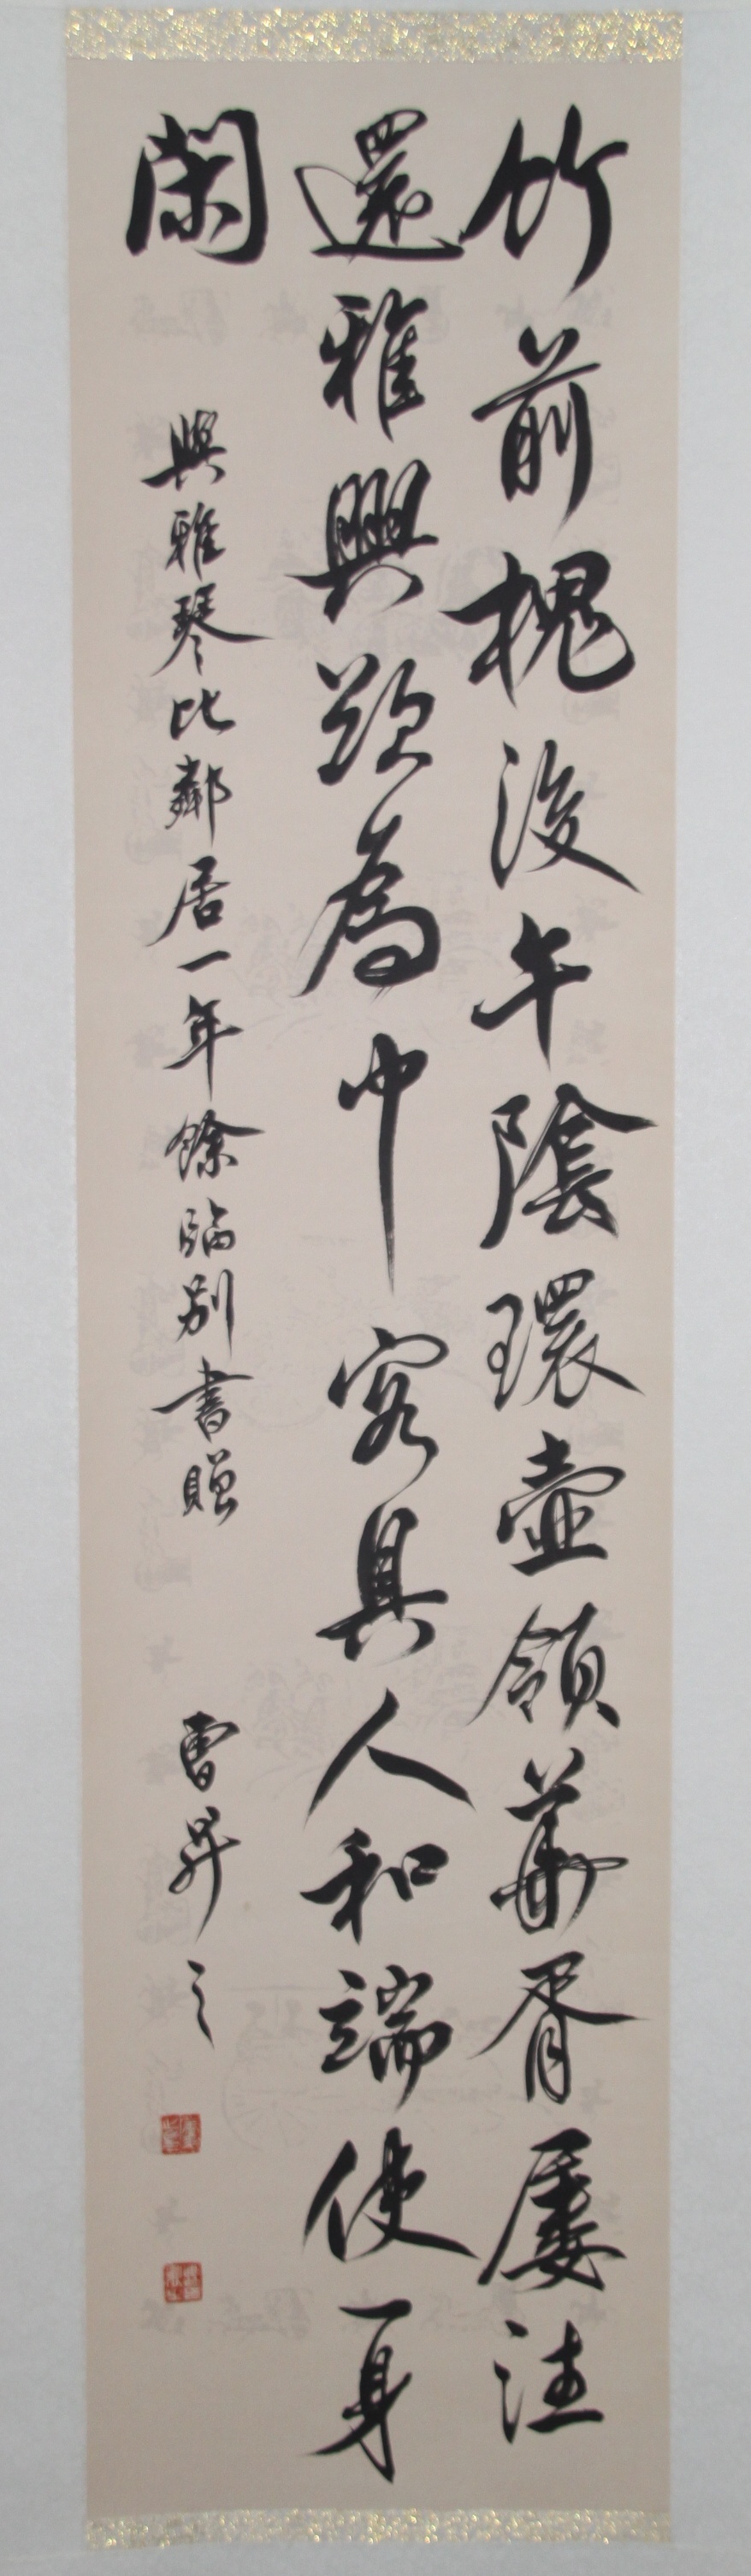 竹前槐後午陰環壺領華胥屢往
還雅興欲為中客具人和端使身
閑
與雅琴比鄰居一年餘臨別書贈
曹昇之